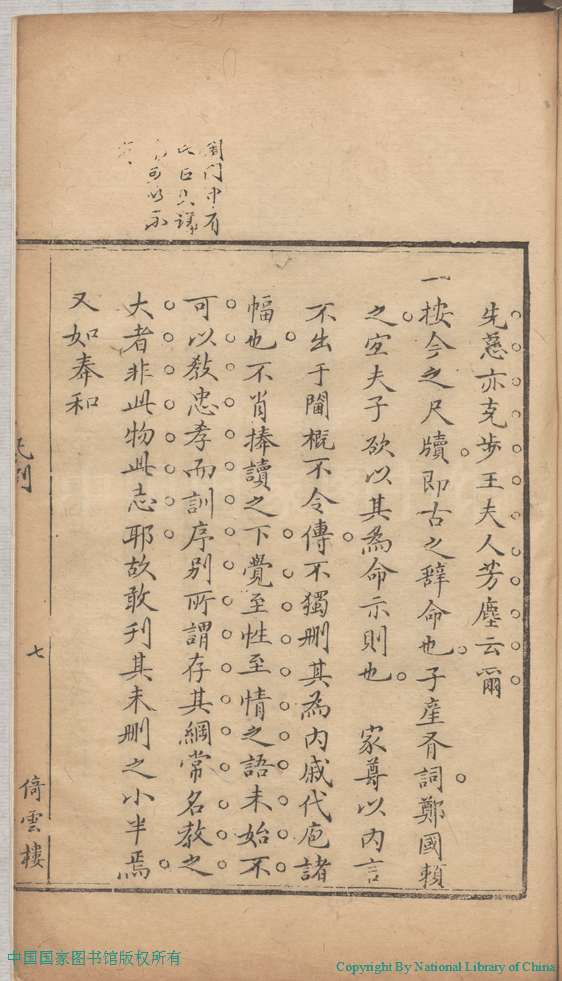 閨門中有
先慈亦克步王夫人芳塵云爾
一按今之尺牘即古之辭命也子產有詞鄭國賴
之宜夫子欲以其為命示則也　家尊以內言
不出于閫概不令傳不獨刪其為內戚代庖諸
幅也不肖捧讀之下覺至性至情之語未始不
可以教忠孝而訓序別所謂存其綱常名教之
大者非此物此志耶故敢刊其未刪之小半焉
又如奉和
凡例
七
倚雲樓
中国国家图书馆版权所有
Copyright By National Library of China